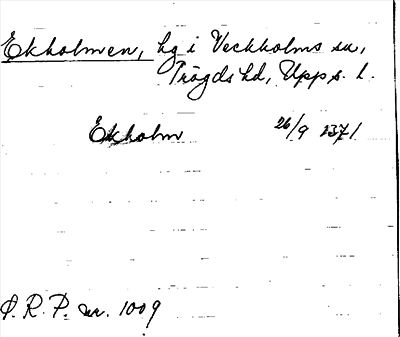 Ekholmen, hg i Veckholms sn,
Trögds hd, Upps. l.
Ekholm 26/9 1371
Ö.R.P. nr. 1009